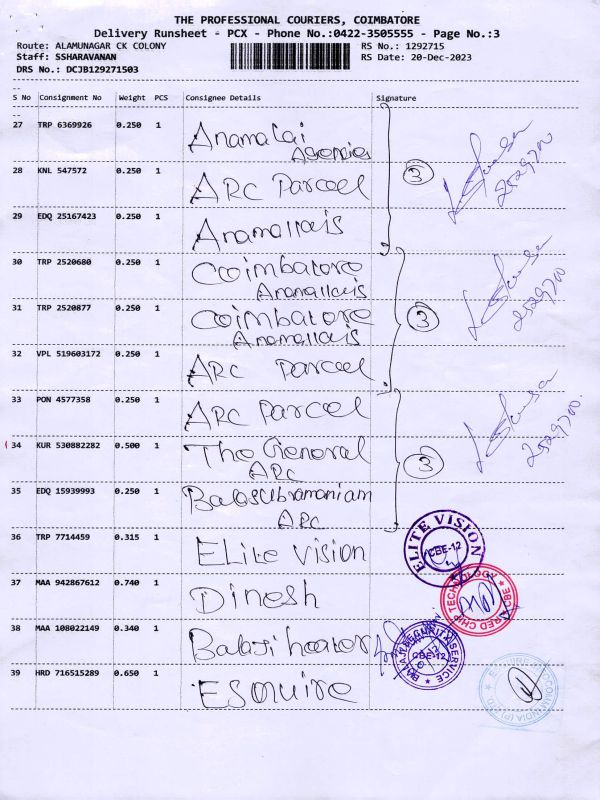 THE PROFESSIONAL COURIERS, COIMBATORE
Delivery Runsheet - PCX - Phone No.:0422-3505555 - Page No.:3
Route: ALAMUNAGAR CK COLONY RS No.: 1292715
Staff: SSHARAVANAN RS Date: 20-Dec-2023
DRS No.: DCJB129271503
S No Consignment No Weight PCS Consignee Details Signature
27 TRP 6369926 0.250 1 Anamalai
Agencies
28 KNL 547572 0.250 1 ARC Parcel
3
2529700
29 EDQ 25167423 0.250 1 Anamallais
30 TRP 2520680 0.250 1 Coimbatore
Anamallais
31 TRP 2520877 0.250 1 Coimbatore
Anamallais
3
2529700
32 VPL 519603172 0.250 1 ARC Parcel
33 PON 4577358 0.250 1 ARC Parcel
34 KUR 530882282 0.500 1 The General
ARC
3
2529700.
35 EDQ 15939993 0.250 1 Balasubramaniam
ARC
36 TRP 7714459 0.315 1 Elite Vision
ELITE VISION
CBE-12
37 MAA 942867612 0.740 1 Dinesh
RED CHIP TECHNOLOGY
38 MAA 108022149 0.340 1 Balaji heater
CBE-12
39 HRD 716515289 0.650 1 Esquire